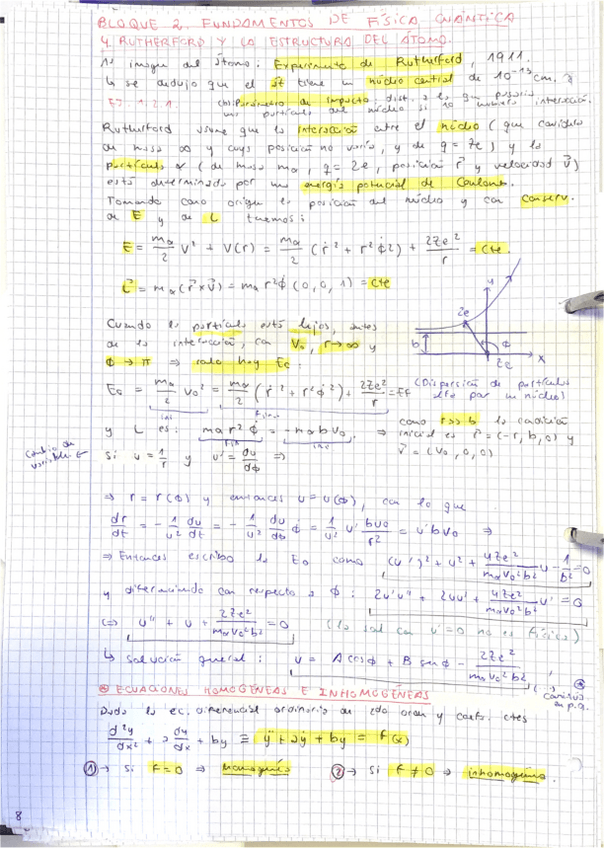 BLOQUE 2. FUNDAMENTOS DE FÍSICA CUÁNTICA
4 RUTHERFORD Y LA ESTRUCTURA DEL ÁTOMO.
1ª imagen del átomo: Experimento de Rutherford, 1911.
↳ se dedujo que el át tiene un núcleo central de 10⁻¹³ cm.
EJ. 1.2.1. Parámetro de impacto: dist. a la que pasaría
una partícula del núcleo si no hubiera interacción.
Rutherford asume que la interacción entre el núcleo (que considera
de masa ∞ y cuya posición no varía, y de q = Ze) y la
partícula α (de masa mα, q = 2e, posición r⃗ y velocidad v⃗)
está determinada por una energía potencial de Coulomb.
Tomando como origen la posición del núcleo y con conserv.
de E y de L tenemos:
E = mα/2 v² + V(r) = mα/2 (ṙ² + r²ϕ̇²) + 2Ze²/r = cte.
L⃗ = mα(r⃗ × v⃗) = mα r²ϕ̇ (0, 0, 1) = cte
y
2e
Cuando la partícula está lejos, antes
b
ϕ
de la interacción, con V₀, r→∞ y
Ze
x
ϕ → π ⇒ solo hay Ec:
E₀ = mα/2 v₀² = mα/2 (ṙ² + r²ϕ̇²) + 2Ze²/r = Ef (Dispersión de partícula
alfa por un núcleo)
ini
y L es: mα r²ϕ̇ = -mα b v₀. ⇒ como r>>b la condición
inicial es r⃗ = (-r, b, 0) y
fin
ini
v⃗ = (v₀, 0, 0)
Cambio de
variable ←
Si u = 1/r y u' = du/dϕ ⇒
⇒ r = r(ϕ) y entonces u = u(ϕ), con lo que
dr/dt = - 1/u² du/dt = - 1/u² du/dϕ ϕ̇ = 1/u² u' bv₀/r² = u'bv₀ ⇒
⇒ Entonces escribo la E₀ como (u')² + u² + 4Ze²/mαv₀²b² u - 1/b² = 0
y diferenciando con respecto a ϕ: 2u'u'' + 2uu' + 4Ze²/mαv₀²b² u' = 0
⇔ u'' + u + 2Ze²/mαv₀²b² = 0 (la sol con u'=0 no es física)
↳ solución general: u = A cosϕ + B senϕ - 2Ze²/mαv₀²b²
⊛ ECUACIONES HOMOGÉNEAS E INHOMOGÉNEAS
Dada la ec. diferencial ordinaria de 2do orden y coefs. ctes
d²y/dx² + a dy/dx + by ≡ ÿ + aẏ + by = F(x)
① → Si F = 0 ⇒ homogénea
② → Si F ≠ 0 ⇒ inhomogénea.
8